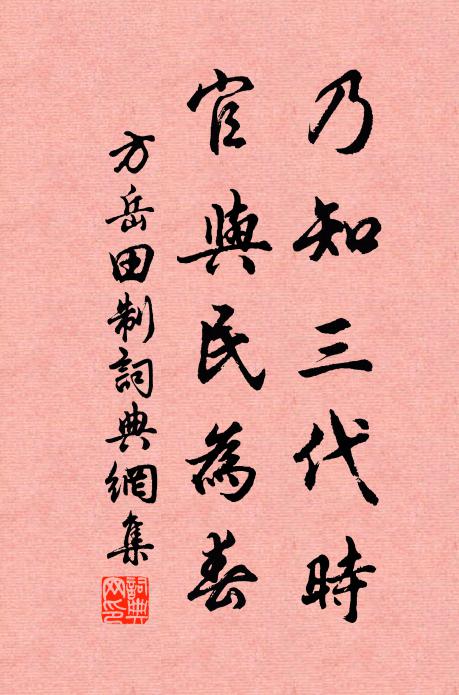 乃知三代時
官與民為春
方岳田制詞典網集
詞典網印